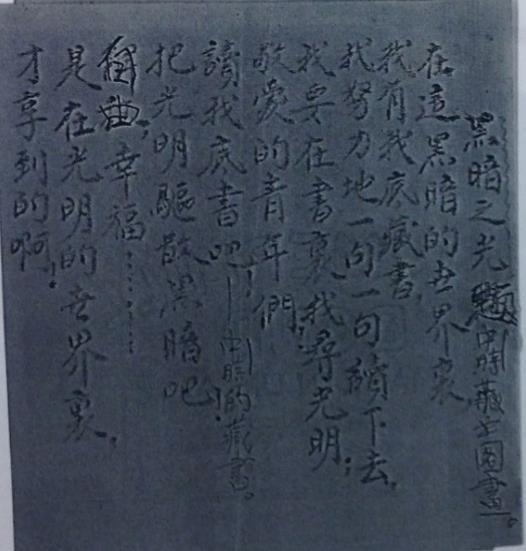 黑暗之光 題中時藏全圖書。
在這黑暗的世界裏
我有我底藏書,
我努力地一句一句續下去,
我要在書裏我尋光明;
敬愛的青年們,
讀我底書吧!—中時的藏書。
把光明驅散黑暗吧!
自由,幸福……
是在光明的世界裏,
才享到的啊!